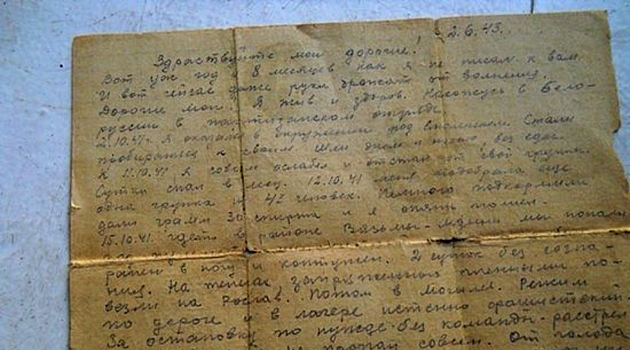 2.6.43.
Здраствуйте мои дорогие!
Вот уже год и 8 месяцев как я не писал к вам
И вот сейчас даже руки дрожат от волнения.
Дорогие мои! Я жив и здоров. Нахожусь в Бело-
руссии в партизанском отряде.
2.10.41 я оказался в окружении под Смоленьем. Стали
пробираться к своим. Шли днем и ночью, без еды.
К 11.10.41 я совсем ослабел и отстал от своей группы.
Сутки спал в лесу. 12.10.41 меня подобрала еще
одна группа в 42 человек. Немного подкормили
дали грамм 30 спирта и я опять пошел.
15.10.41 где то в районе Вязьмы- мы попали
ранен в ногу и контужен. 2 суток без созна-
ния. На телегах запряженных пленными по-
везли на Рославль. Потом в Могилев. Режим
по дороге и в лагере истенно фашистский.
За остановку по нужде без команды - расстрел
совсем. От голода